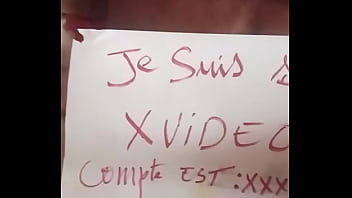 Je Suis
XVIDEO
Compte EST:XXX